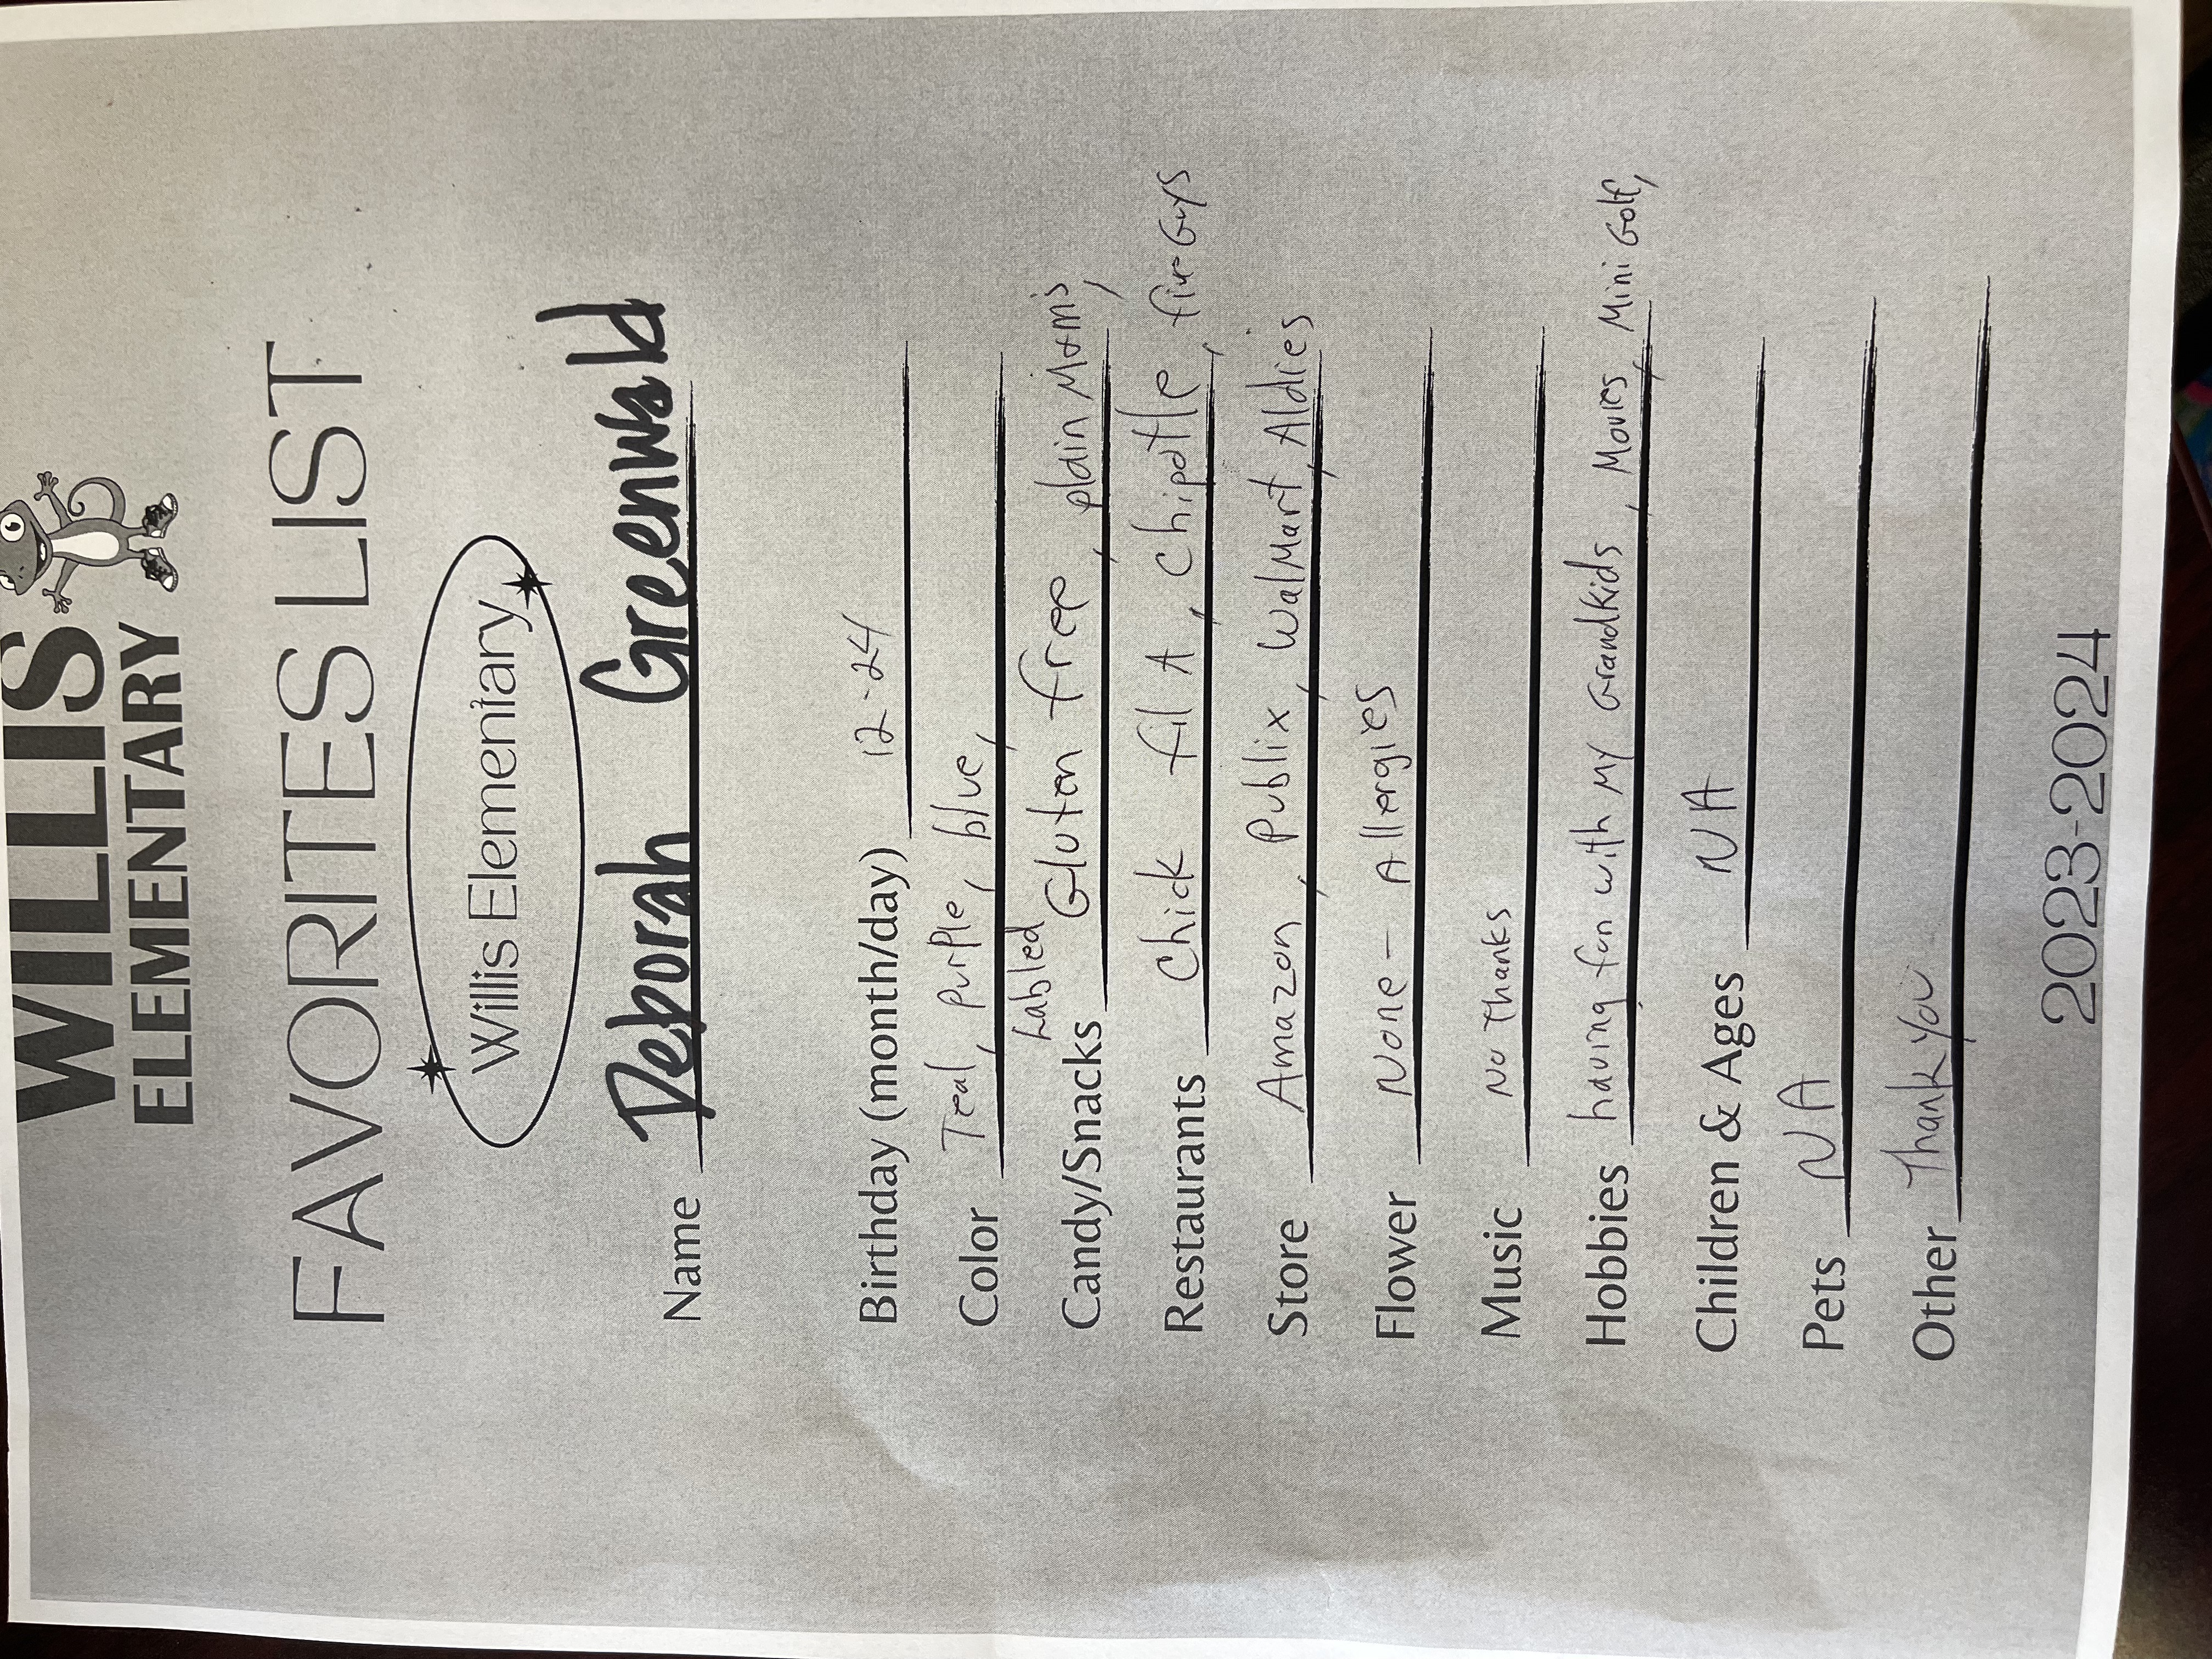 WILLIS
ELEMENTARY
FAVORITES LIST
Willis Elementary
Name Deborah Greenwald
Birthday (month/day) 12-24
Color Teal, purple, blue,
Labled
Candy/Snacks Gluten free, plain M&m's,
Restaurants Chick fil A, Chipotle, five Guys
Store Amazon, Publix, WalMart, Aldies
Flower None - Allergies
Music No Thanks
Hobbies having fun with my Grandkids, Movies, Mini Golf,
Children & Ages NA
Pets NA
Other Thank you
2023-2024